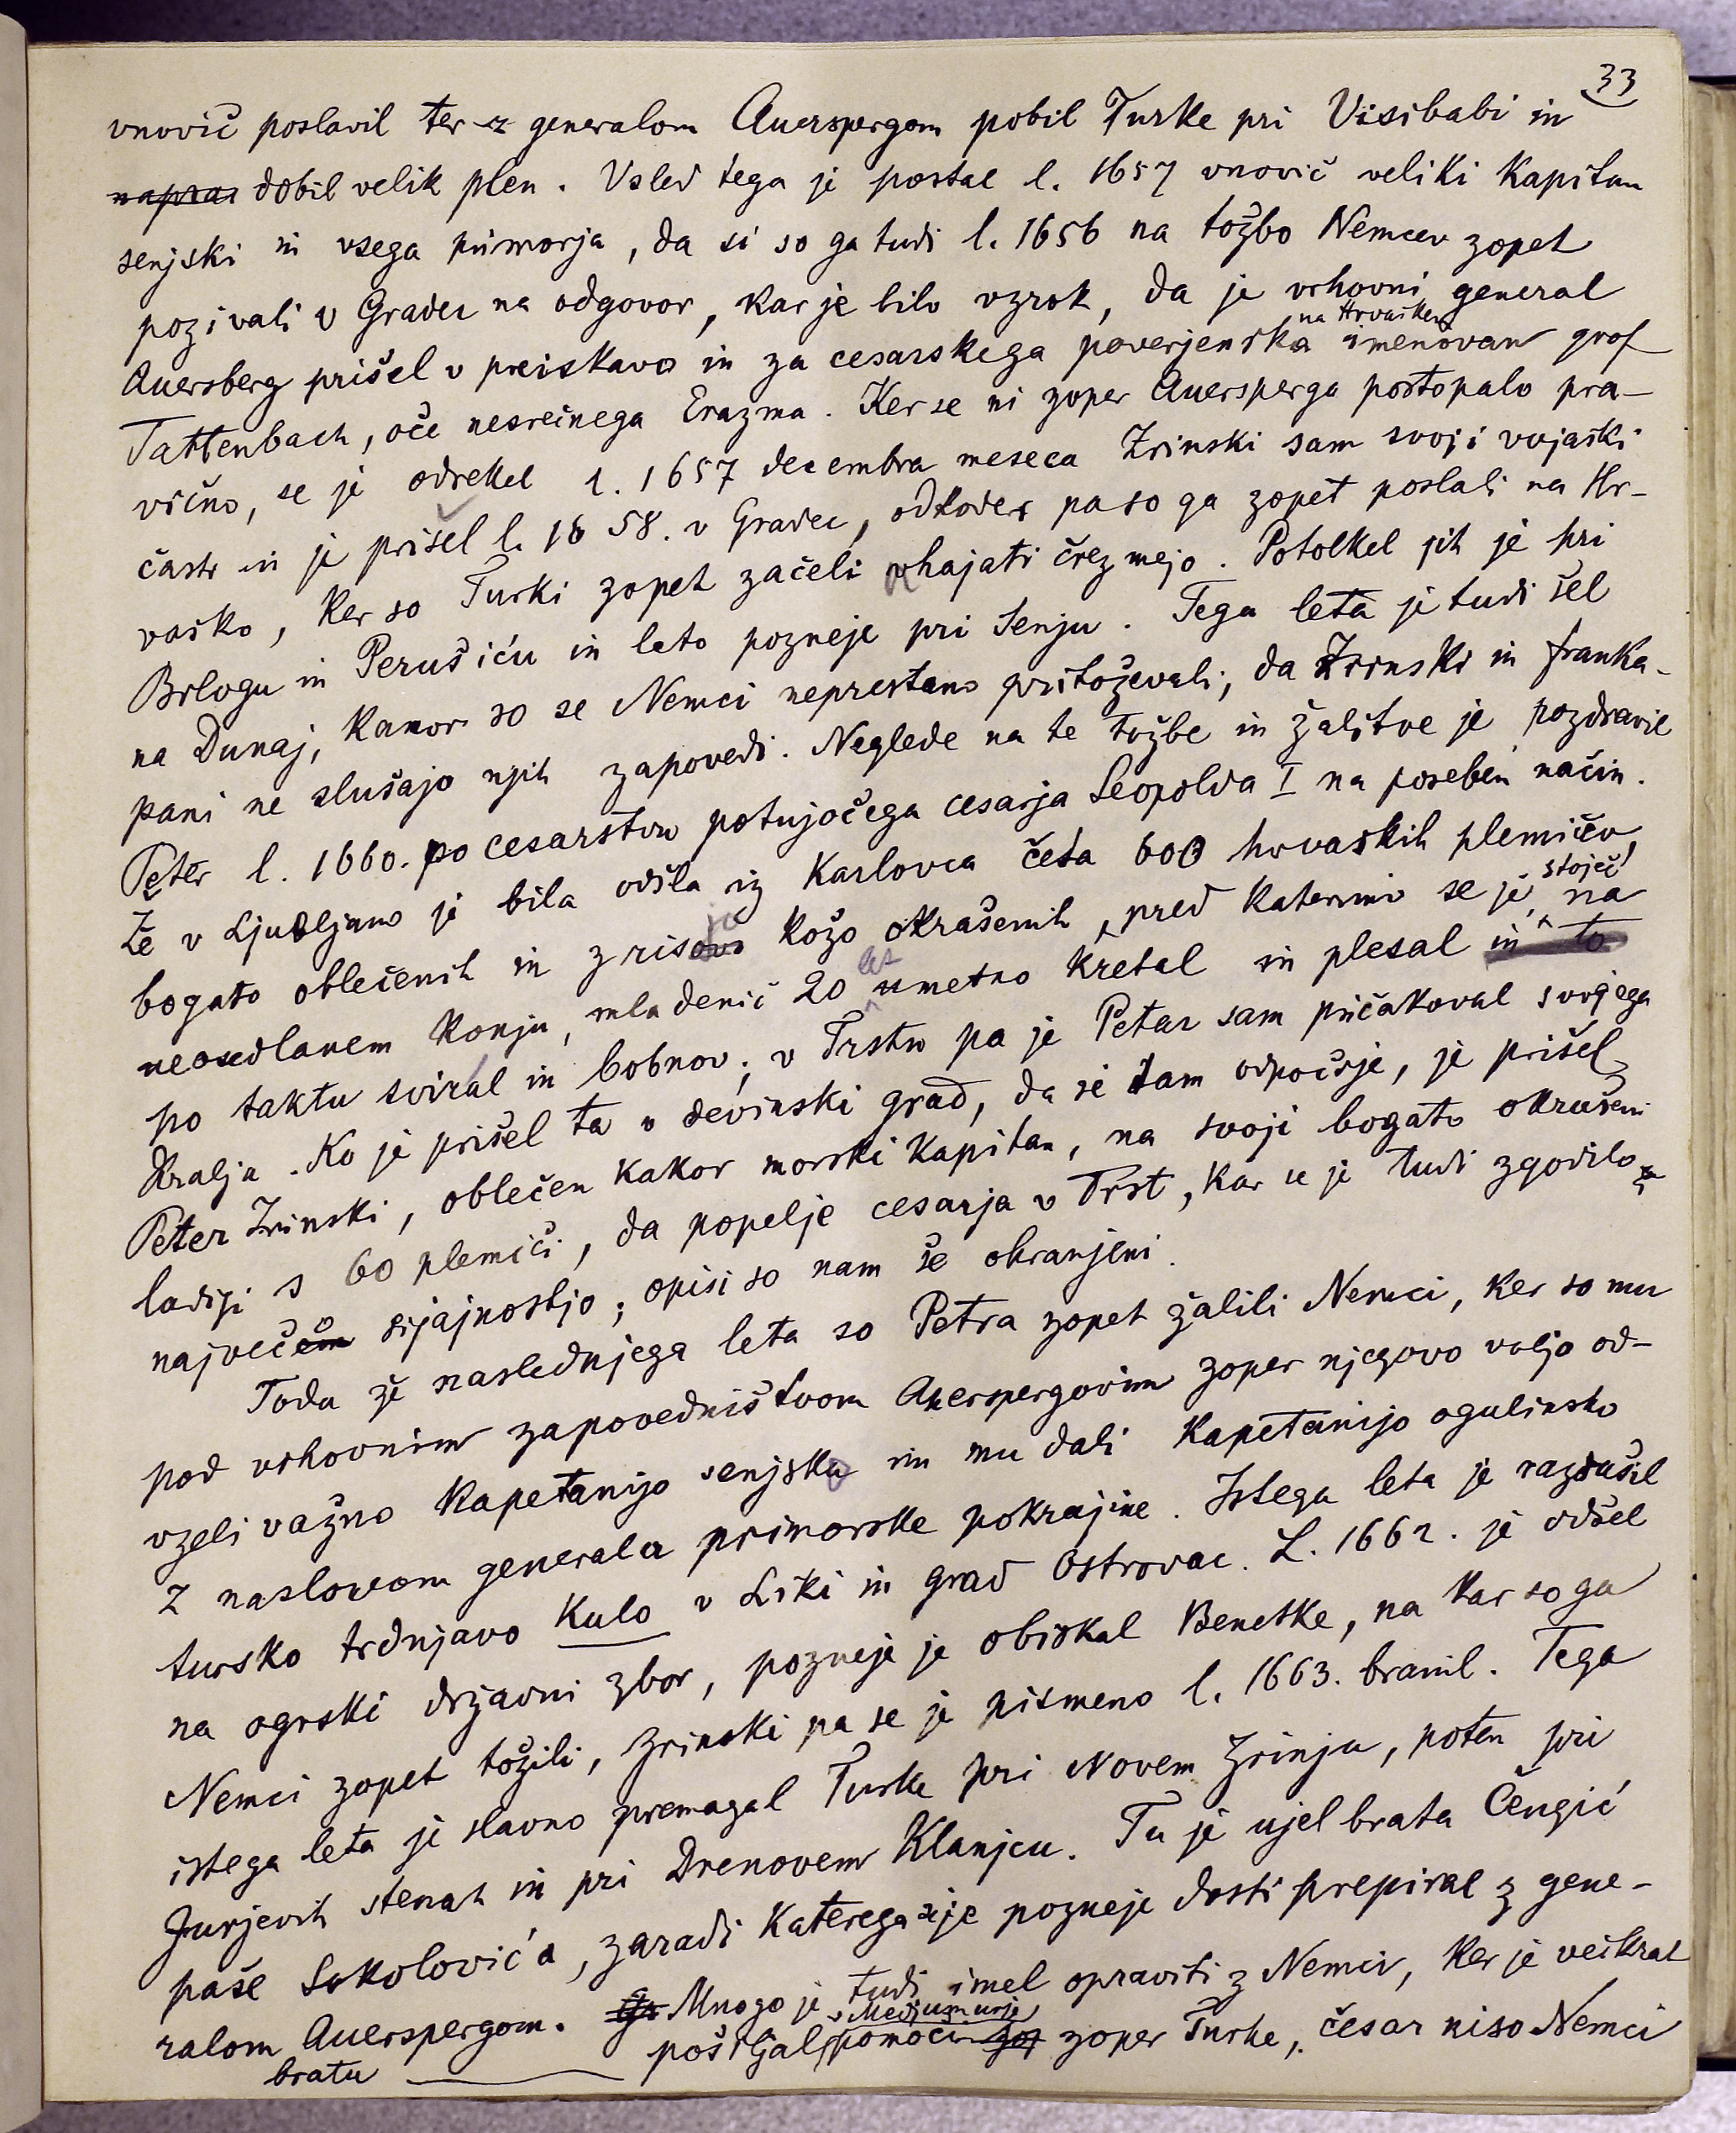 33
vnovič poslavil ter z generalom Auerspergom pobil Turke pri Visibabi in
napra dobil velik plen. Vsled tega je postal l. 1657 vnovič veliki kapitan
senjski in vsega primorja, da si so ga tudi l. 1656 na tožbo Nemcev zopet
pozivali v Gradec na odgovor, kar je bilo vzrok, da je vrhovni general
na Hrvaškem
Auersberg prišel v preiskavo in za cesarskega poverjenika imenovan grof
Tattenbach, oče nesrečnega Erazma. Ker se ni zoper Auersperga postopalo pra-
vično, se je odrekel l. 1657 decembra meseca Zrinski sam svoji vojaški
časti in je prišel l. 1658. v Gradec, odkoder pa so ga zopet poslali na Hr-
vaško, ker so Turki zopet začeli uhajati črez mejo. Potolkel jih je pri
Brlogu in Perušiću in leto pozneje pri Senju. Tega leta je tudi šel
na Dunaj, kamor so se Nemci neprestano pritoževali, da Zrinski in Franka-
pani ne slušajo njih zapovedi. Neglede na te tožbe in žalitve je pozdravil
Peter l. 1660. po cesarstvu potujočega cesarja Leopolda I na poseben način.
Že v Ljubljano je bila odšla iz Karlovca četa 600 hrvaških plemičev,
bogato oblečenih in z risovo kožo okrašenih, pred katerimi se je stoječ na
neosedlanem konju, mladenič 20 let umetno kretal in plesal in to
po taktu sviral in bobnov; v Trstu pa je Petar sam pričakoval svojega
kralja. Ko je prišel ta v devinski grad, da se tam odpočije, je prišel
Peter Zrinski, oblečen kakor morski kapitan, na svoji bogato okrašeni
ladiji s 60 plemiči, da popelje cesarja v Trst, kar se je tudi zgodilo z
največem sijajnostjo; opisi so nam še ohranjeni.
Toda že naslednjega leta so Petra zopet žalili Nemci, ker so mu
pod vrhovnim zapovedništvom Auerspergovim zoper njegovo voljo od-
vzeli važno kapetanijo senjsko in mu dali kapetanijo ogulinsko
z naslovom generala primorske pokrajine. Istega leta je razrušil
tursko trdnjavo Kulo v Liki in grad Ostrovac. L. 1662. je odšel
na ogrski državni zbor, pozneje je obiskal Benetke, na kar so ga
Nemci zopet tožili, Zrinski pa se je pismeno l. 1663. branil. Tega
istega leta je slavno premagal Turke pri Novem Zrinju, potem pri
Jurjevih stenah in pri Drenovem Klanjcu. Tu je ujel brata Čengić
paše Sokolovića, zaradi katerega se je pozneje dosti prepiral z gene-
ralom Auerspergom. Mnogo je tudi imel opraviti z Nemci, ker je večkrat
bratu v Medjumurje pošiljal pomoči zop zoper Turke, česar niso Nemci